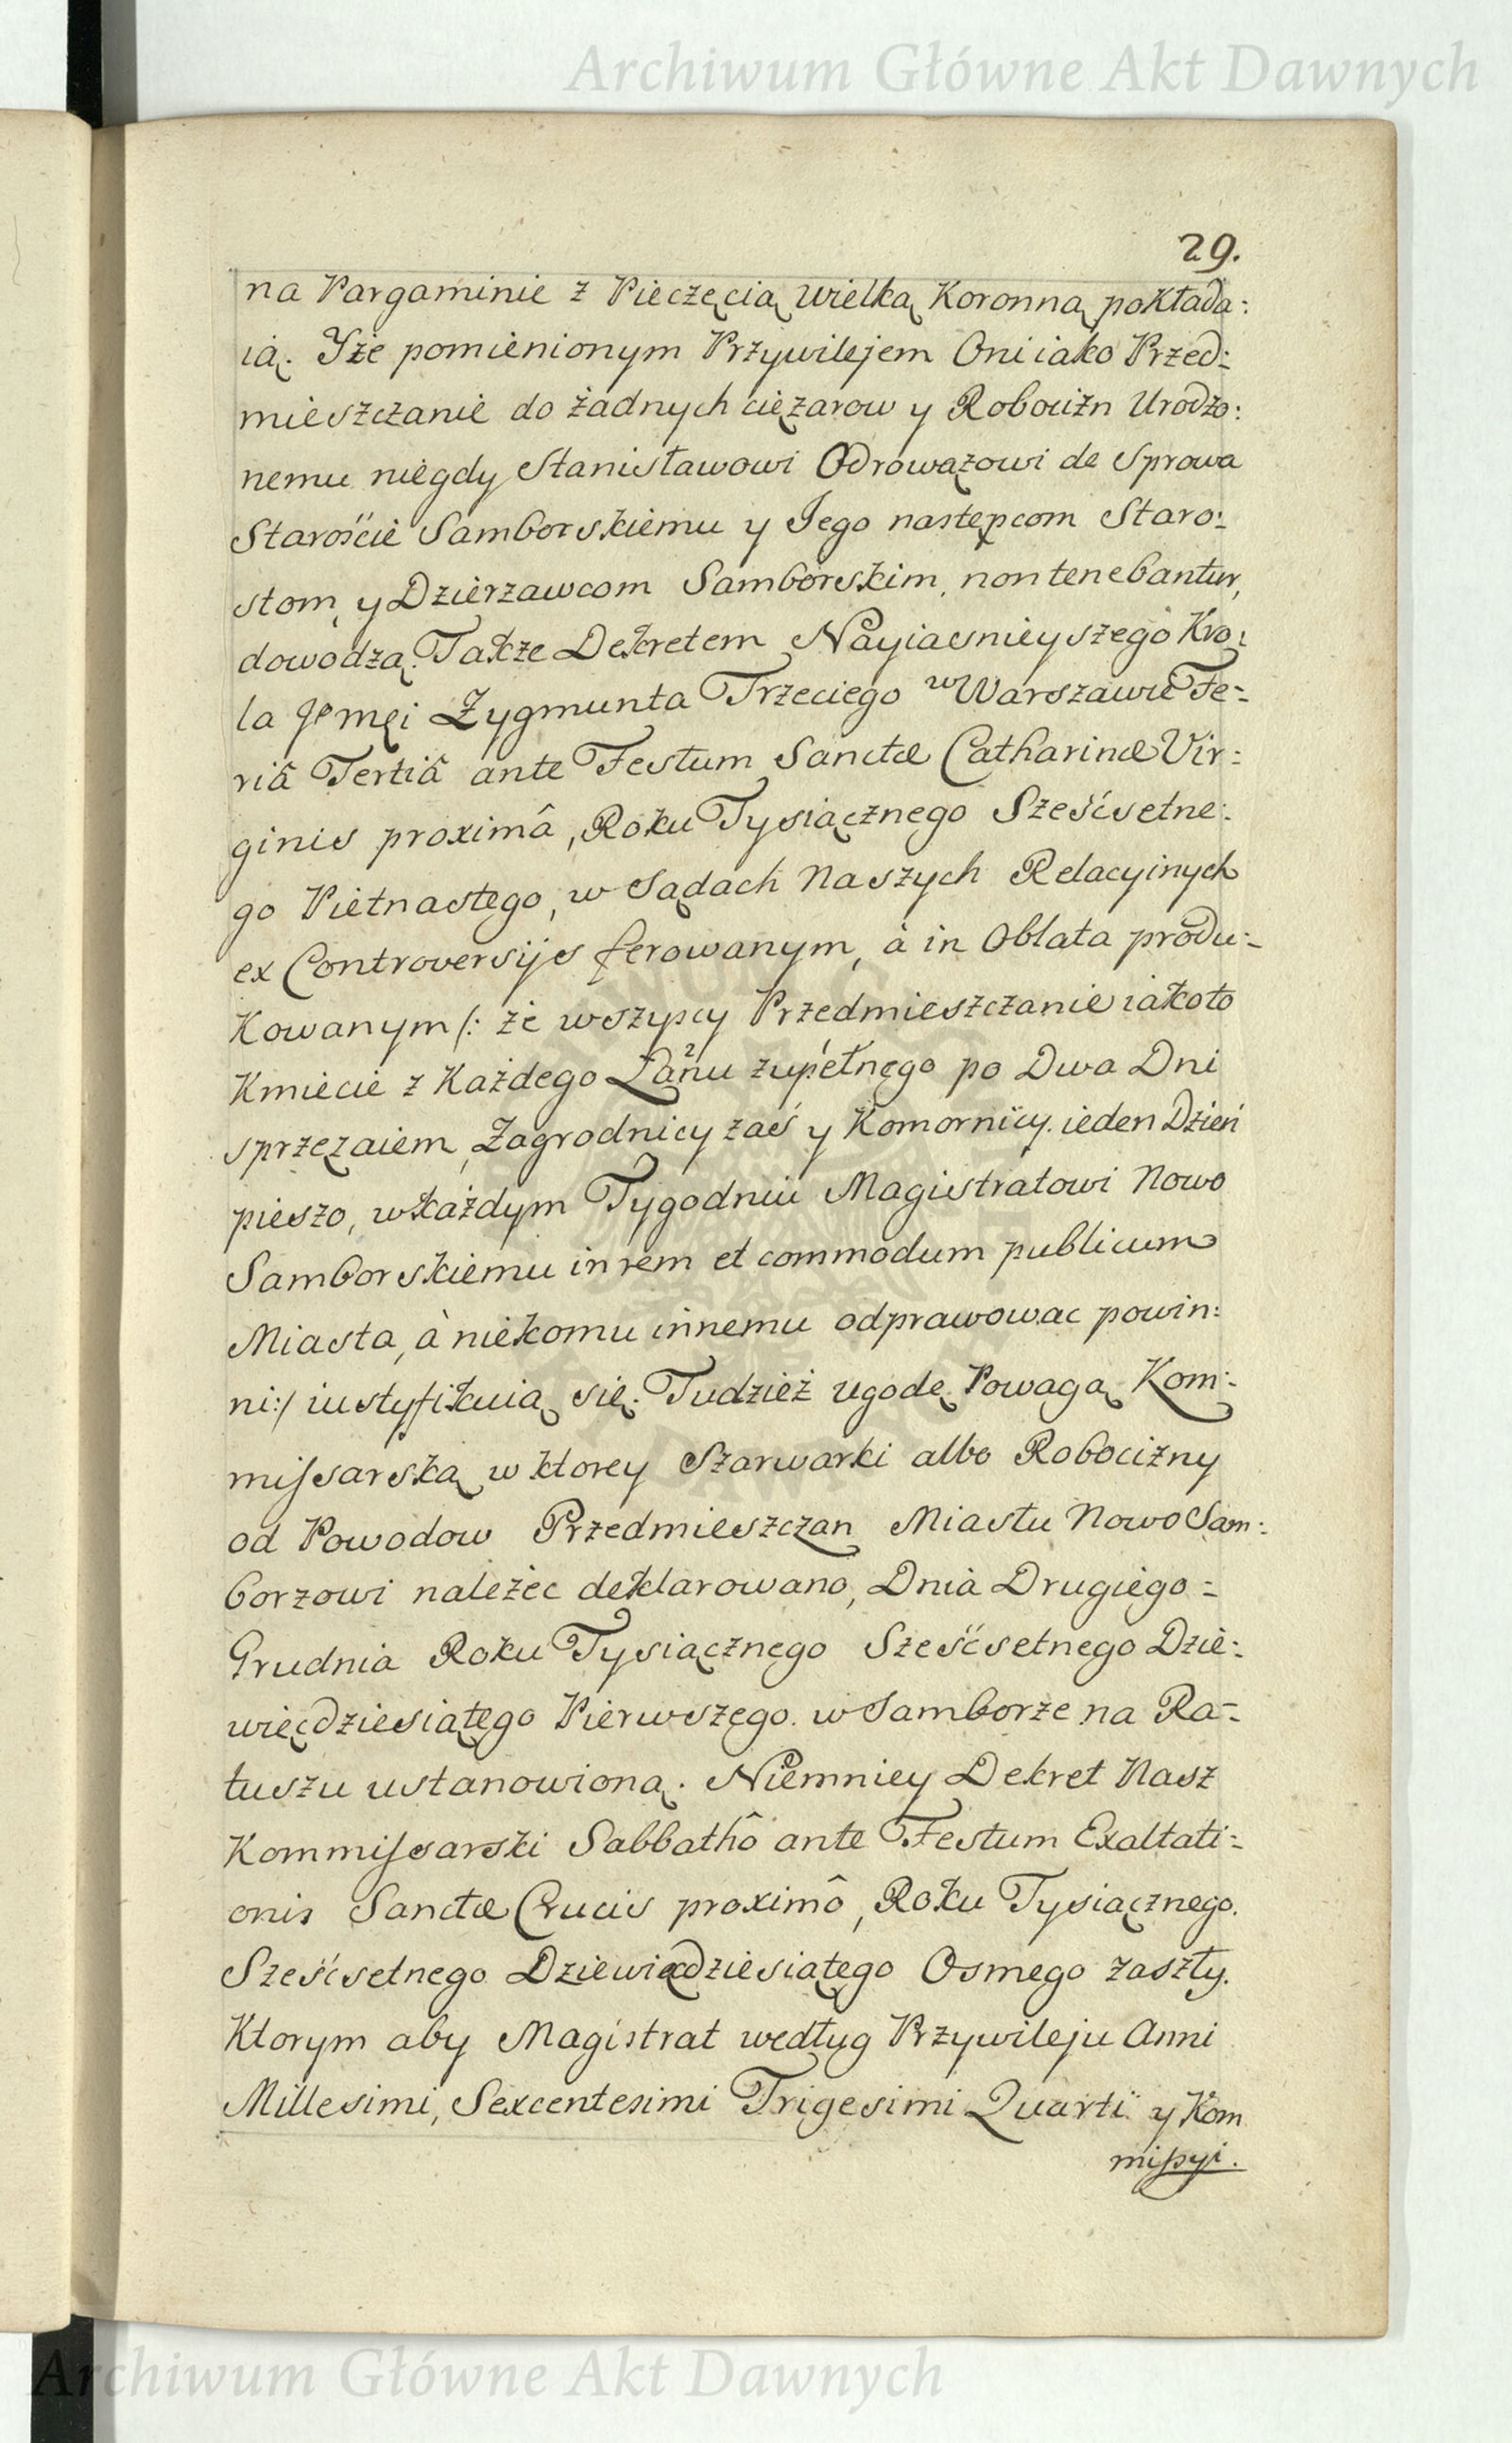 Archiwum Główne Akt Dawnych
29.
na Pargaminie z Pieczęcią Wielką Koronną pokłada:
ią. Yże pomienionym Przywilejem Oni iako Przed:
mieszczanie do żadnych ciężarow y Robocizn Urodzo:
nemu niegdy Stanisławowi Odrowążowi de Sprowa
Starośćie Samborskiemu y Jego następcom Staro:
stom, y Dzierzawcom Samborskim, non tenebantur,
dowodzą. Także Dekretem Nayiasnieyszego Kro:
la Jemęi Zygmunta Trzeciego w Warszawie Fe:
riâ Tertiâ ante Festum Sanctæ Catharinæ Vir:
ginis proximâ, Roku Tysiącznego Sześćsetne:
go Pietnastego, w Sądach Naszych Relacyinych
ex Controversijs ferowanym, à in Oblata produ:
kowanym /: że wszyscy Przedmieszczanie iakoto
Kmiecie z Każdego Łanu zupełnego po Dwa Dni
sprzezaiem, Zagrodnicy zaś y Komornicy ieden Dzień
pieszo, w każdym Tygodniu Magistratowi Nowo
Samborskiemu in rem et commodum publicum
Miasta, à niekomu innemu odprawowac powin:
ni:/ iustyfikuią się. Tudzież ugodę Powagą Kom:
missarską w ktorey Szarwarki albo Robocizny
od Powodow Przedmieszczan Miastu Nowo Sam:
borzowi należec deklarowano, Dnia Drugiego =
Grudnia Roku Tysiącznego Sześćsetnego Dzie:
więcdziesiątego Pierwszego w Samborze na Ra:
tuszu ustanowioną. Niemniey Dekret Nasz
Kommissarski Sabbathô ante Festum Exaltati:
onis Sanctæ Crucis proximô, Roku Tysiącznego
Sześćsetnego Dziewięcdziesiątego Osmego zaszły.
Ktorym aby Magistrat według Przywileju Anni
Millesimi, Sexcentesimi Trigesimi Quarti y Kom
missyi.
Archiwum Główne Akt Dawnych